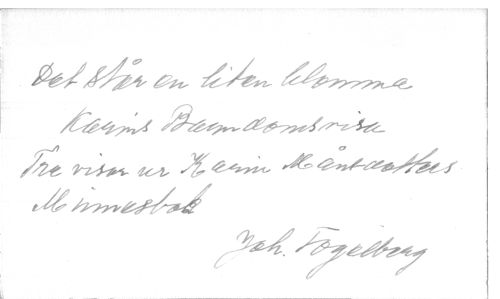 Det står en liten blomma
Karins Barndomsvisa
Tre visor ur Karin Månsdotters
Minnesbok
Joh. Fogelberg